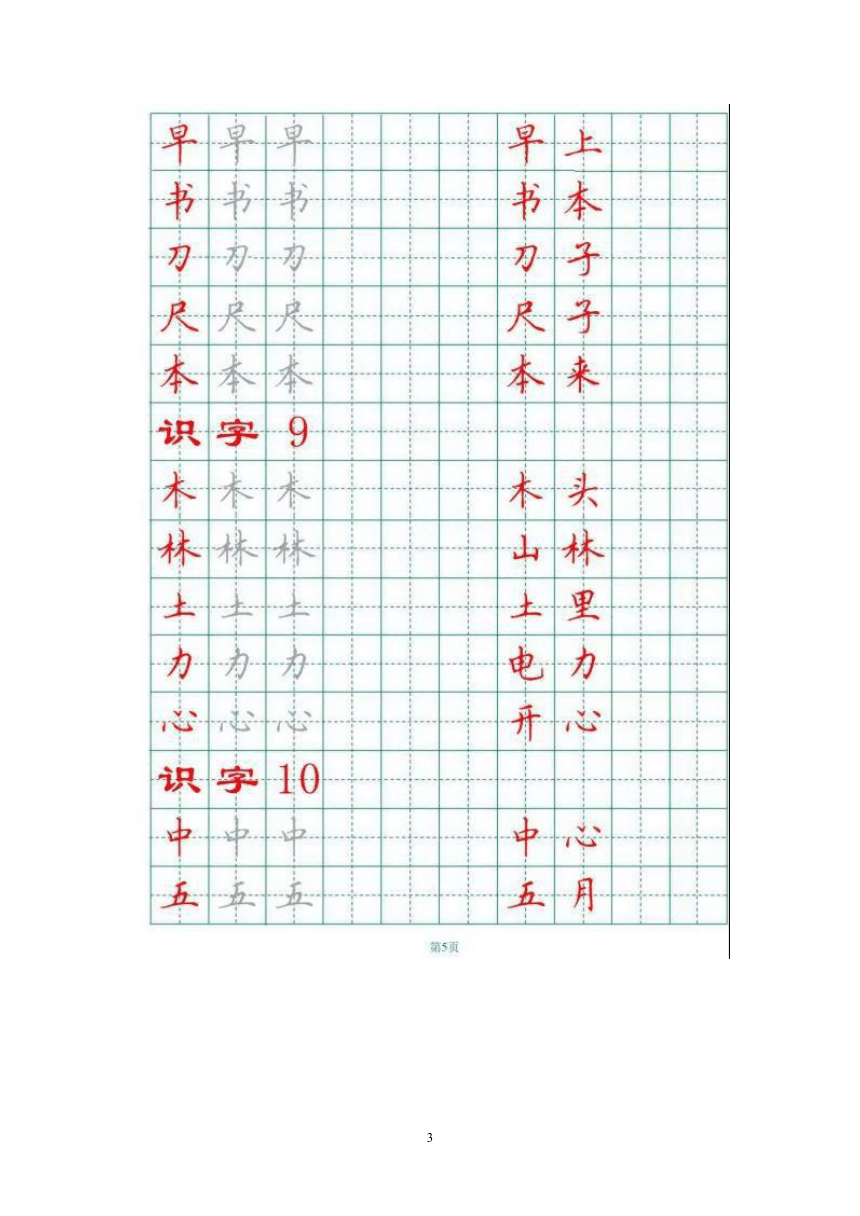 早 早 早 早 上
书 书 书 书 本
刀 刀 刀 刀 子
尺 尺 尺 尺 子
本 本 本 本 来
识 字 9
木 木 木 木 头
林 林 林 山 林
土 土 土 土 里
力 力 力 电 力
心 心 心 开 心
识 字 10
中 中 中 中 心
五 五 五 五 月
第5页
3